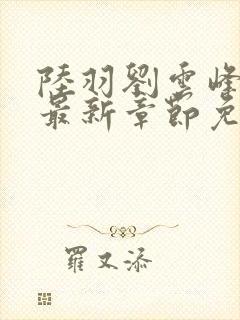 陸羽劉雲峰
最新章節免
羅又添